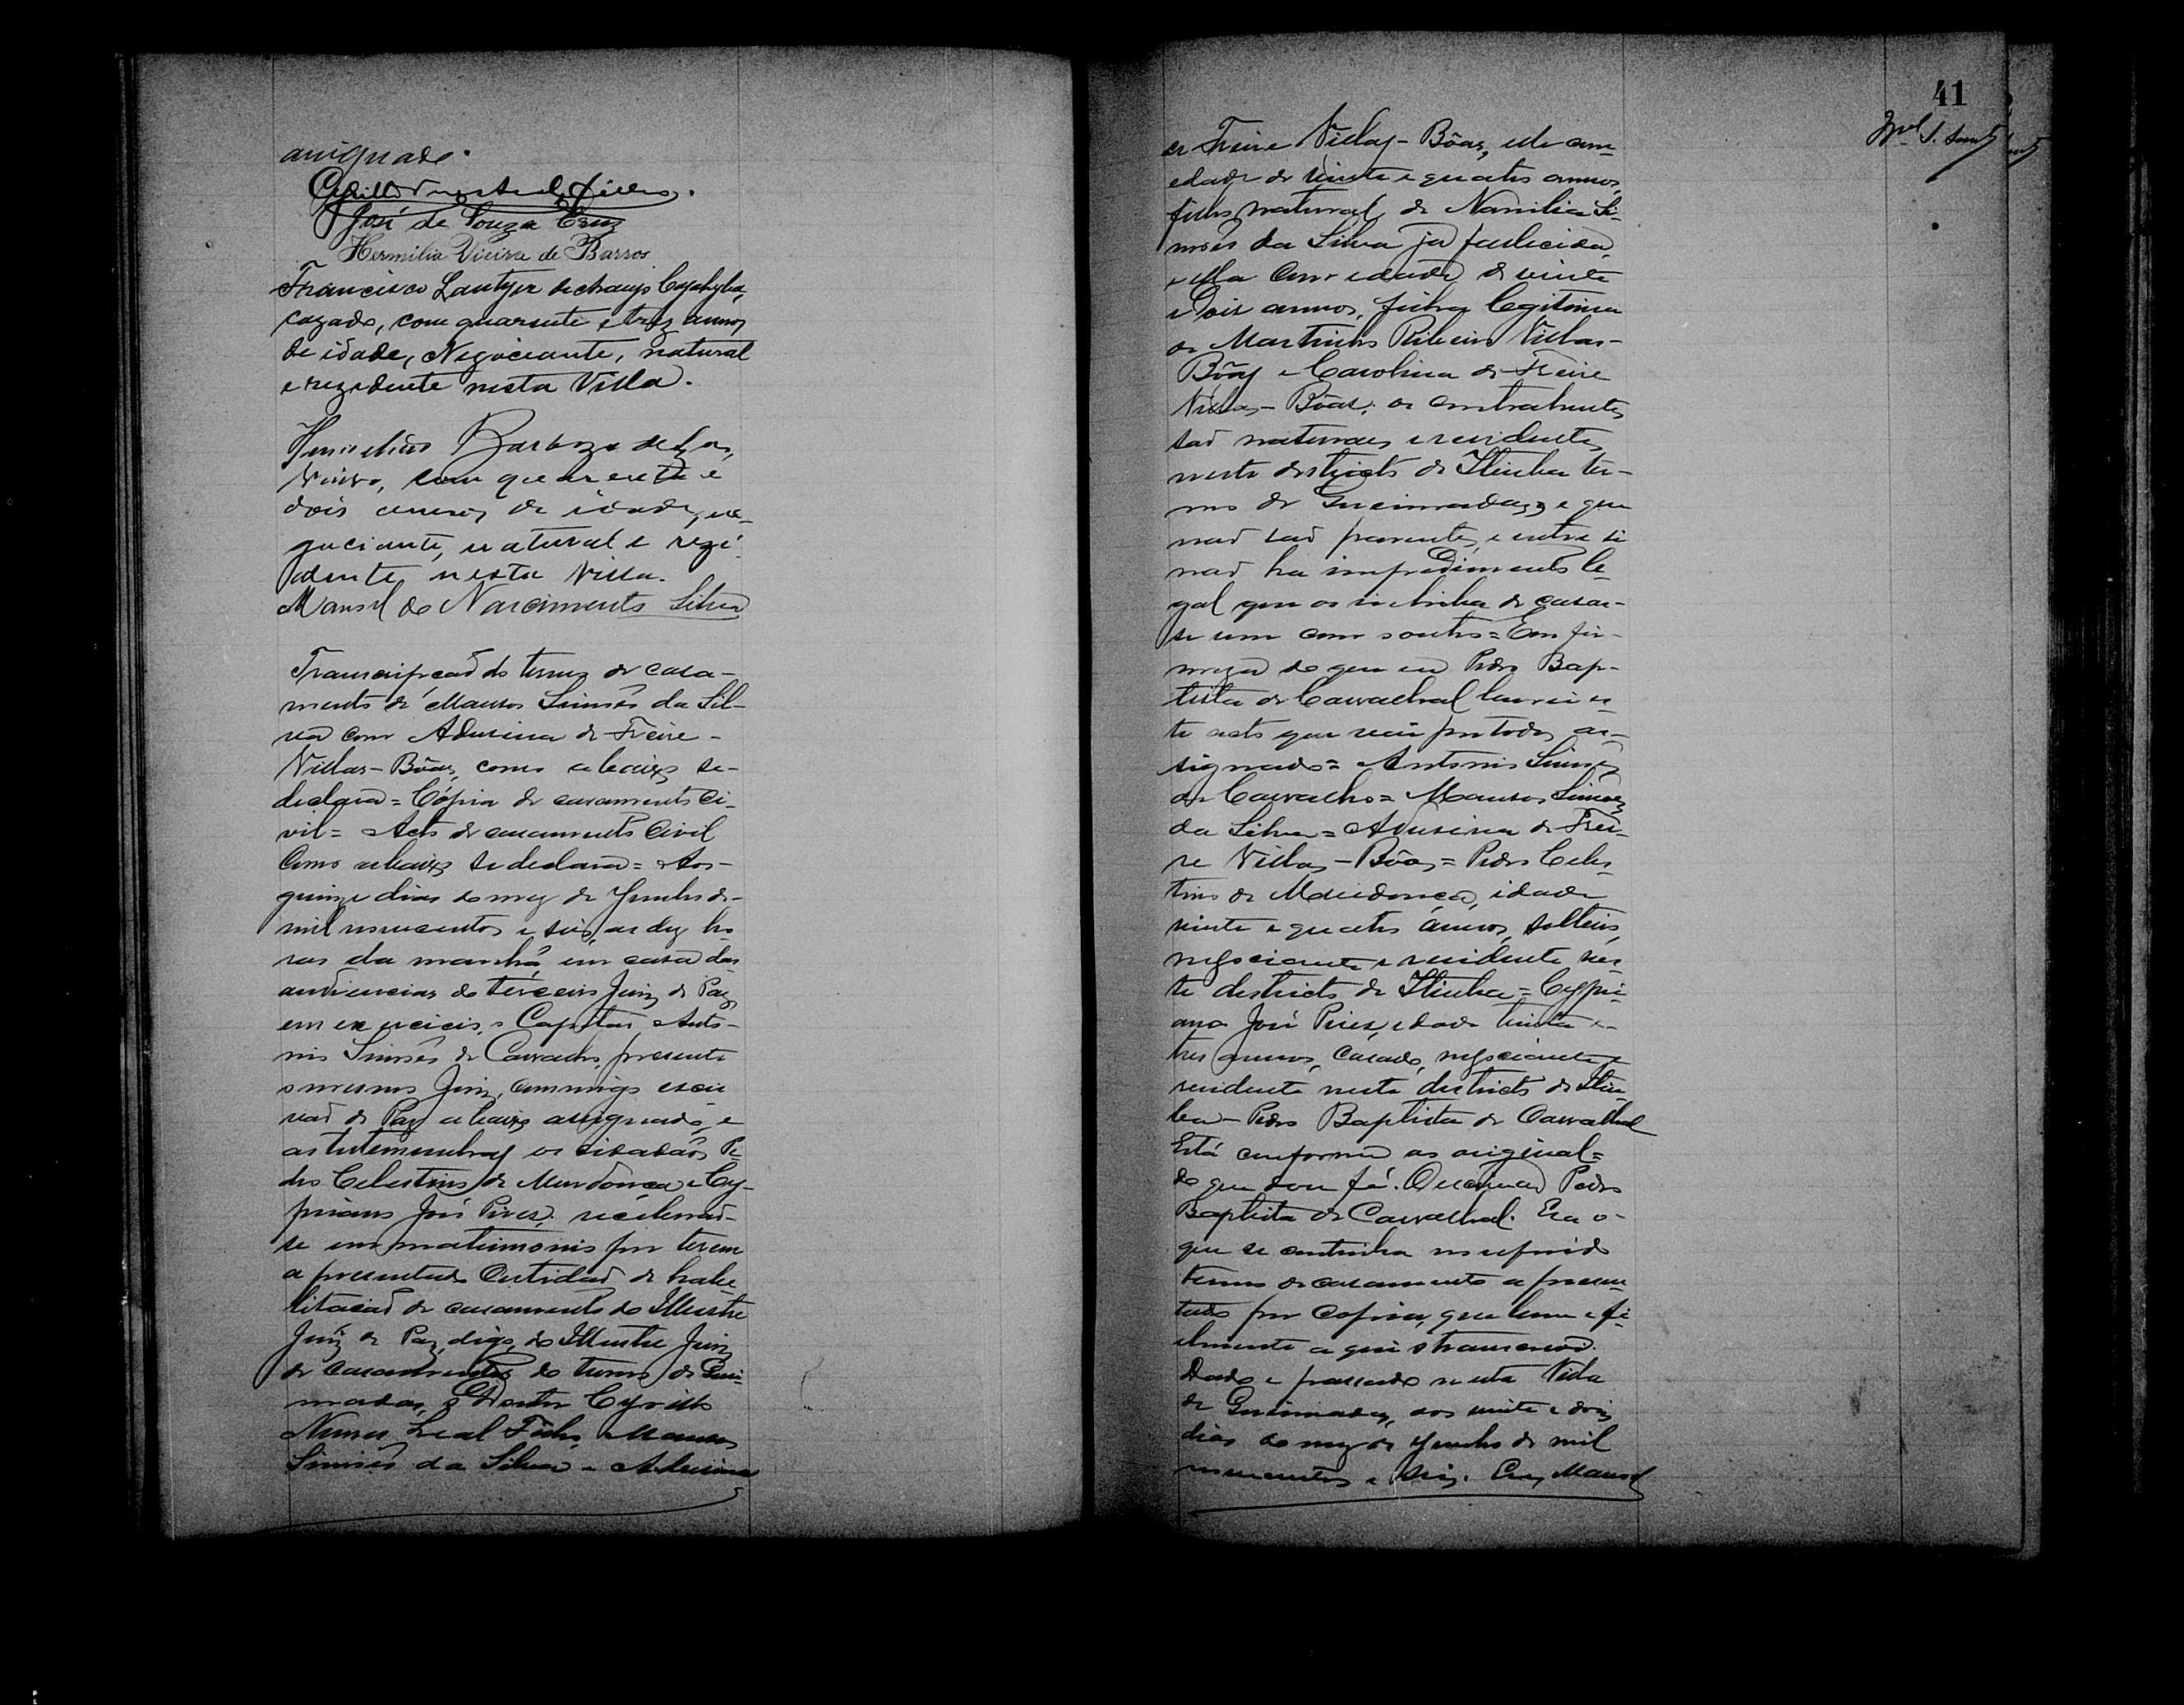 assignado.
Cyrillo Nunes Leal Filho.
José de Souza Cruz
Hermilia Vieira de Barros
Francisco Lantyer de Araujo Cajahyba,
cazado, com quarente e tres annos
de idade, Negociante, natural
e rezedente nesta Villa.
Barboza
Viuvo, com quarenta e
dois annos de idade, ne-
gociante, natural e rezi-
dente nesta Villa.
Manoel do Nascimento Silva
Transcripcão do termo de casa-
mento de Manso Simões da Sil-
va com Adusina de Freire-
Villas-Bôas, como abaixo se-
declara = Cópia de casamento Ci-
vil = Acto de casamento Civil
Como abaixo se declara = Aos-
quinze dias do mez de Junho de-
mil novecentos e seis, as dez ho-
ras da manhã, em casa das
audiencias do terceiro Juiz de Paz
em exercicio, o Capitão Anto-
nio Simões de Carvalho, presente
o mesmo Juiz, commigo escri
vão de Paz abaixo assignado, e
as tutemunhas os cidadãos Pe-
dro Celestino de Mendonça e Cy-
priano José Pires, receberão-
se em matrimonio por terem
apresentado Certidão de habe
litacão de casamento do Illustre
Juiz de Paz, digo, do Illustre Juiz
de Casamentos do termo de Quei-
madas, o Doutor Cyrillo
Nunes Leal Filho, Manso
Simões da Silva e Adusina
41
de Freire Villas-Bôas, elle com
edade de vinte e quatro annos,
filho natural de Namilia Si-
mões da Silva já fallecida,
e ella com edade de vinte
e dois annos, filha legitima
de Martinho Ribeiro Villas-
Bôas e Carolina de Freire
Villas-Bôas; os contrahentes
são naturaes e residentes
neste districto de Itiuba ter-
mo de Queimadas, e que
não são parentes, e entre si
não ha impedimento le-
gal que os inhiba de casar-
se um com o outro = Em fir-
meza do que eu Pedro Bap-
tista de Carvalhal lavrei es-
te acto que vai por todos as-
signado = Antonio Simões
de Carvalho = Manso Simões
da Silva = Adusina de Frei-
re Villas-Bôas = Pedro Celes-
tino de Mendonça, idade
vinte e quatro annos, solteiro,
negociante e residente nes-
te districto de Itiuba = Cypri-
ano José Pires, edade trinta e-
tres annos, casado, negociante e
residente neste districto de Itiu-
ba = Pedro Baptista de Carvalhal
Está conforme ao original =
do que dou fé. O escrivão Pedro
Baptista de Carvalhal. Era o-
que se continha no referido
termo de casamento apresen-
tado por copia, que bem e fi-
elmente aqui o transcrevo.
Dado e passado nesta Villa
de Queimadas, aos vinte e dois
dias do mez de Junho de mil
novecentos e seis. Eu, Manoel